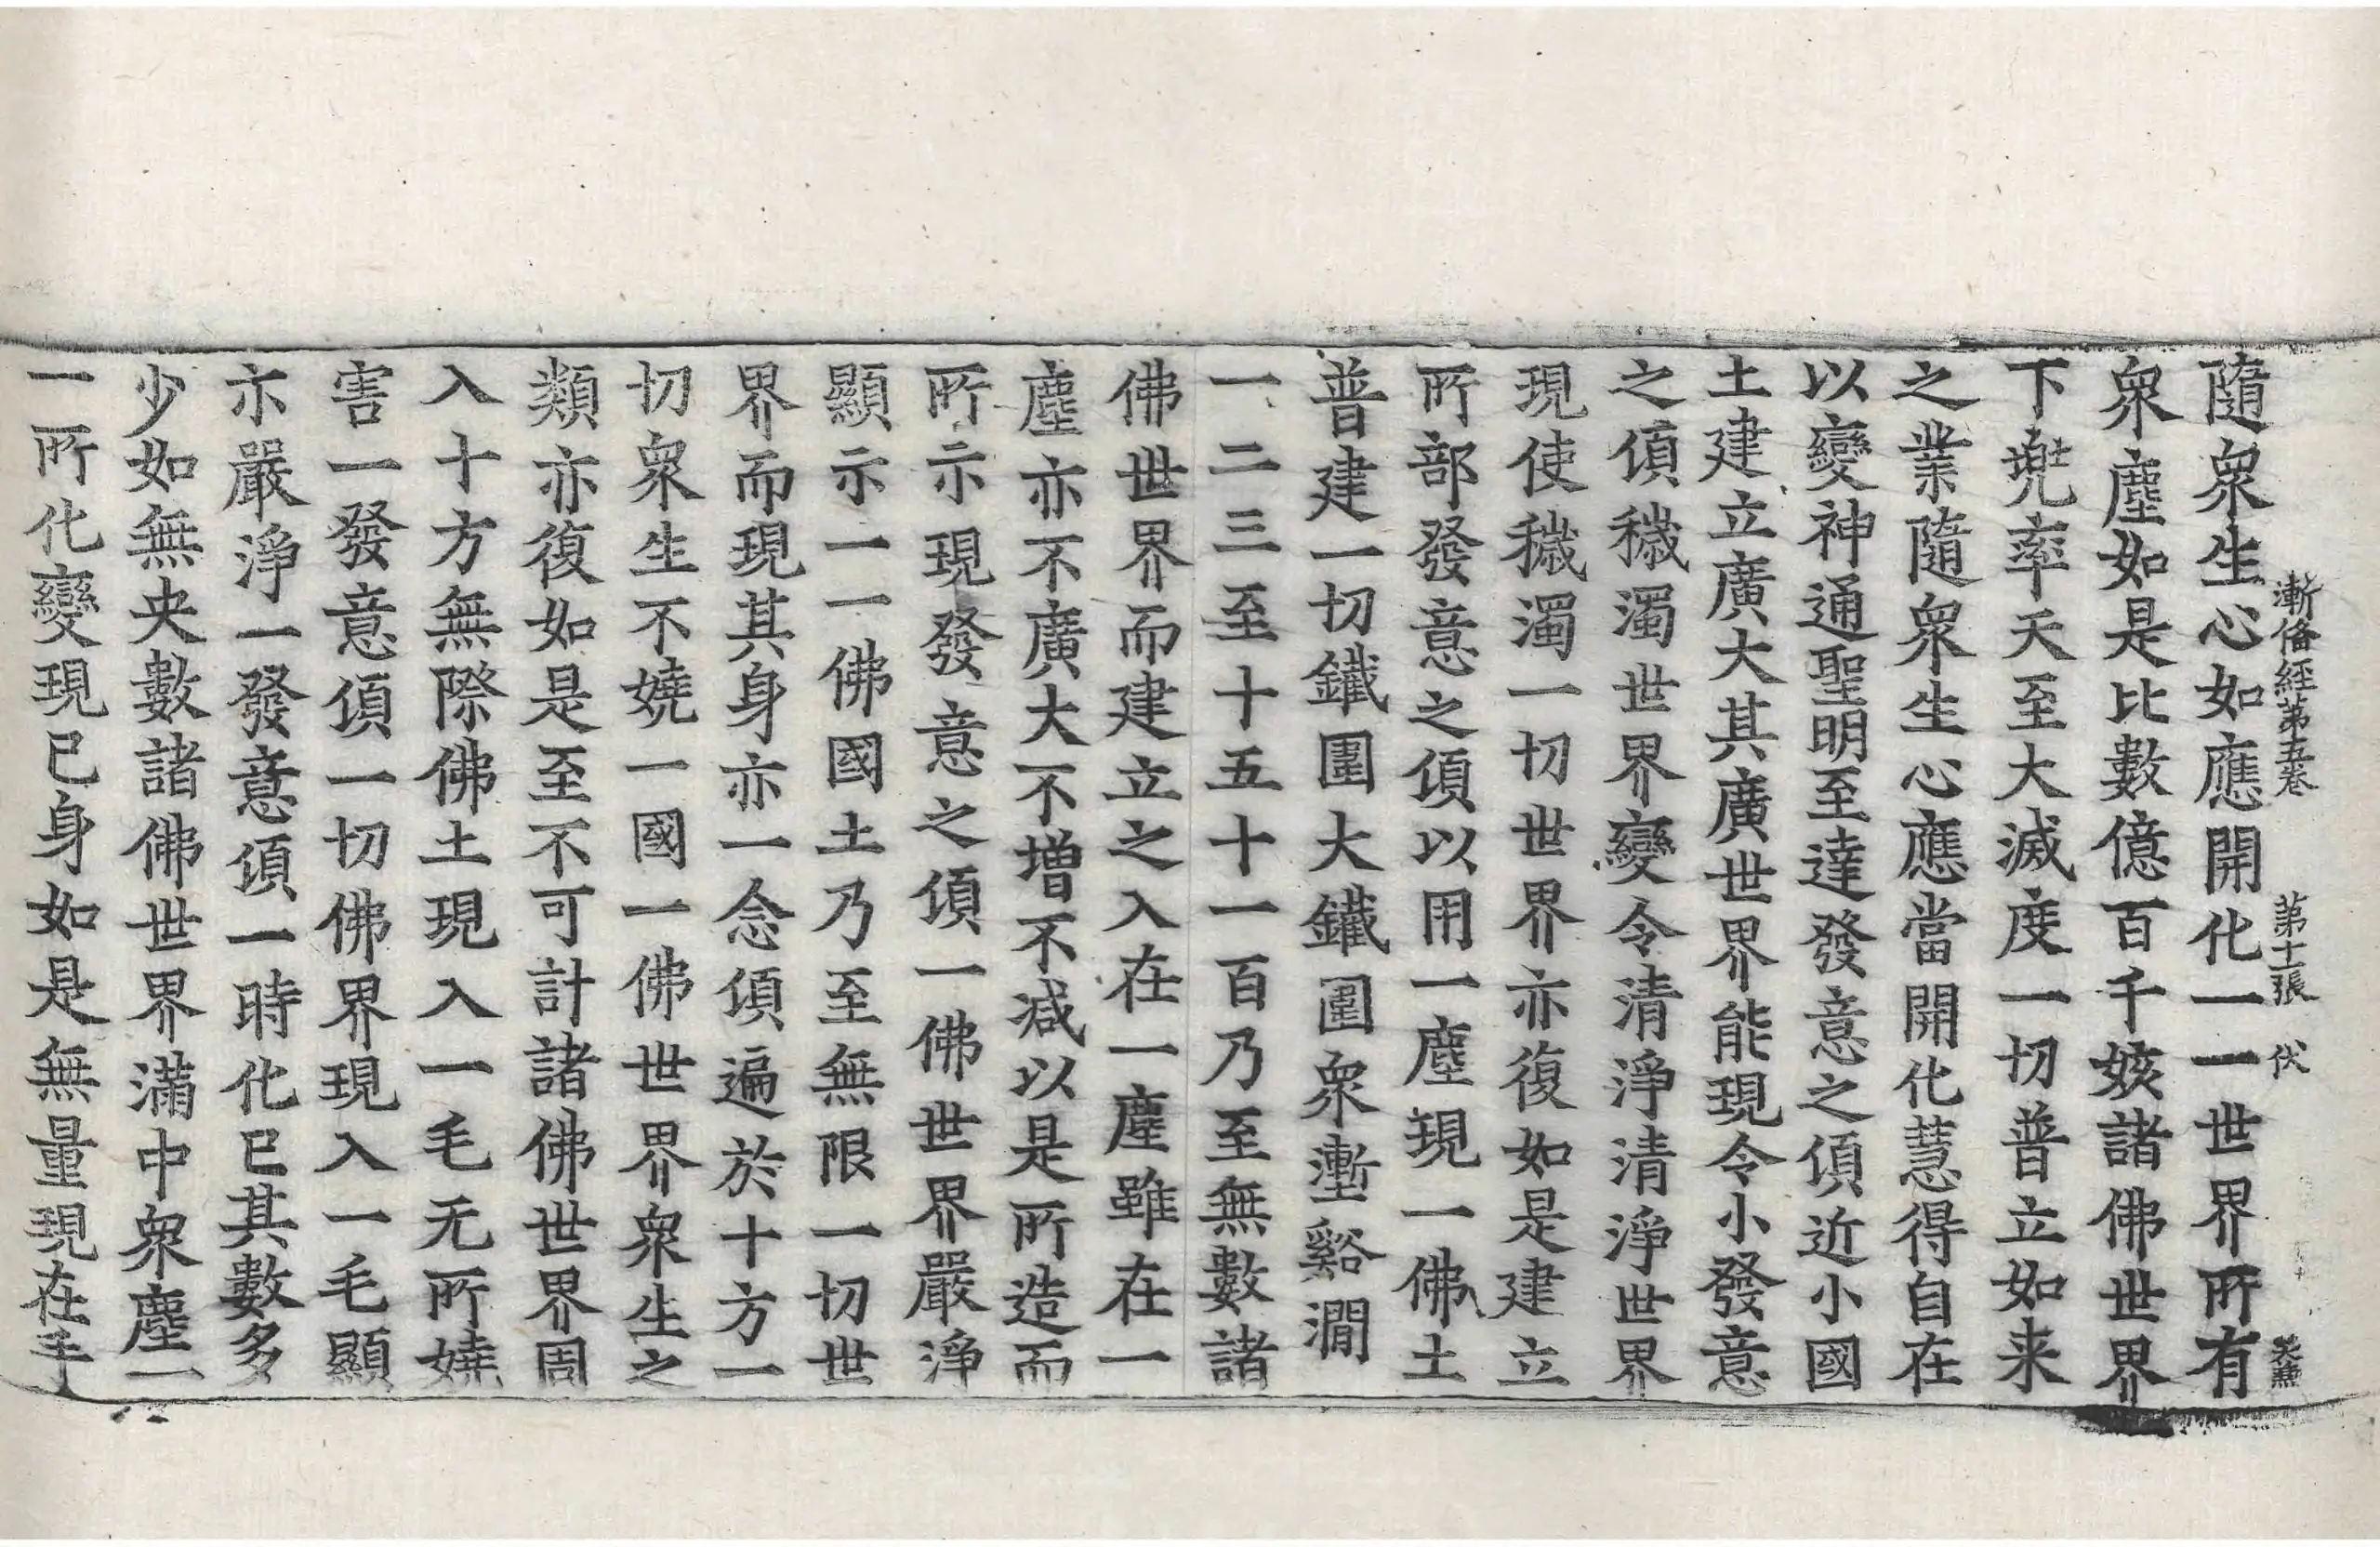 漸俻經第五卷　第十二張　伏
隨衆生心如應開化一一世界所有
衆塵如是比數億百千姟諸佛世界
下兠率天至大滅度一切普立如来
之業隨衆生心應當開化慧得自在
以變神通聖明至達發意之頃近小國
土建立廣大其廣世界能現令小發意
之頃穢濁世界變令清淨清淨世界
現使穢濁一切世界亦復如是建立
所部發意之頃以用一塵現一佛土
普建一切鐵圍大鐵圍衆壍谿澗
一二三至十五十一百乃至無數諸
佛世界而建立之入在一塵雖在一
塵亦不廣大不增不减以是所造而
所示現發意之頃一佛世界嚴淨
顯示一一佛國土乃至無限一切世
界而現其身亦一念頃遍於十方一
切衆生不嬈一國一佛世界衆生之
類亦復如是至不可計諸佛世界周
入十方無際佛土現入一毛无所嬈
害一發意頃一切佛界現入一毛顯
示嚴淨一發意頃一時化已其數多
少如無央數諸佛世界滿中衆塵一
一所化變現已身如是無量現在手